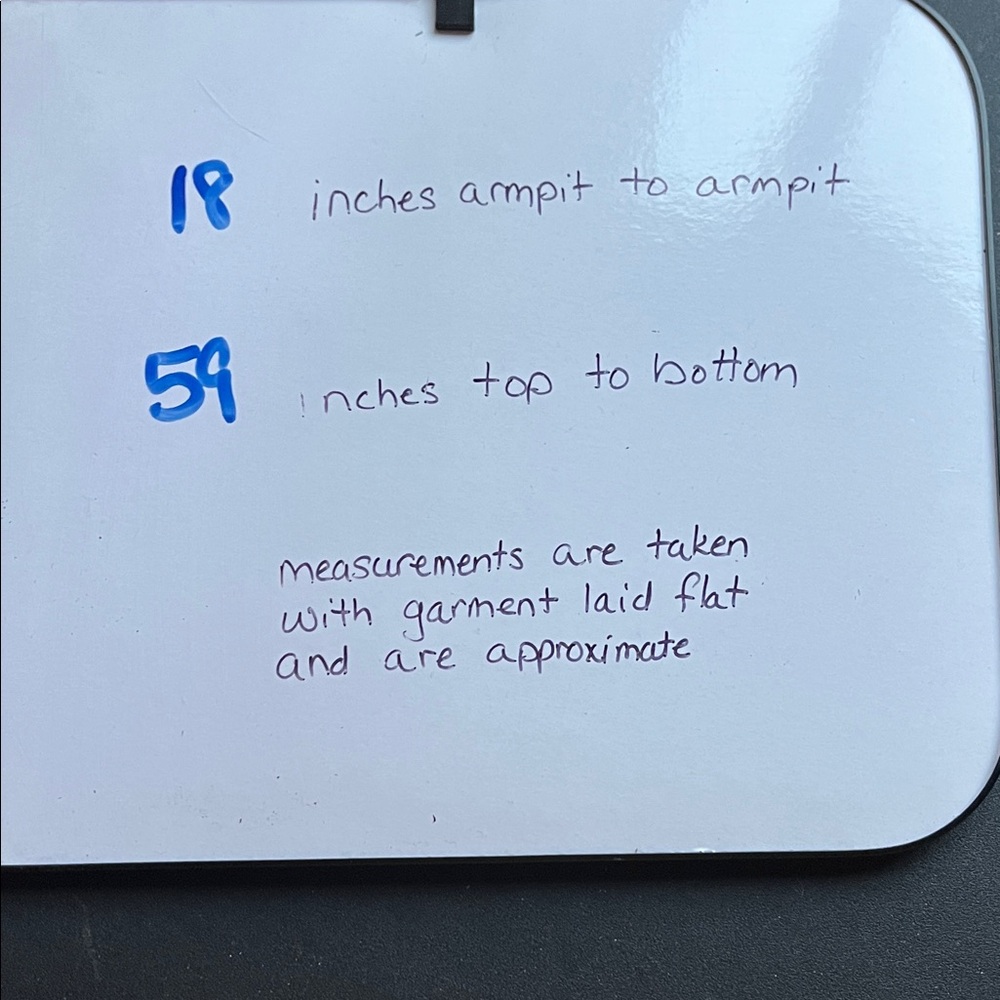 18 inches armpit to armpit
59 inches top to bottom
measurements are taken
with garment laid flat
and are approximate